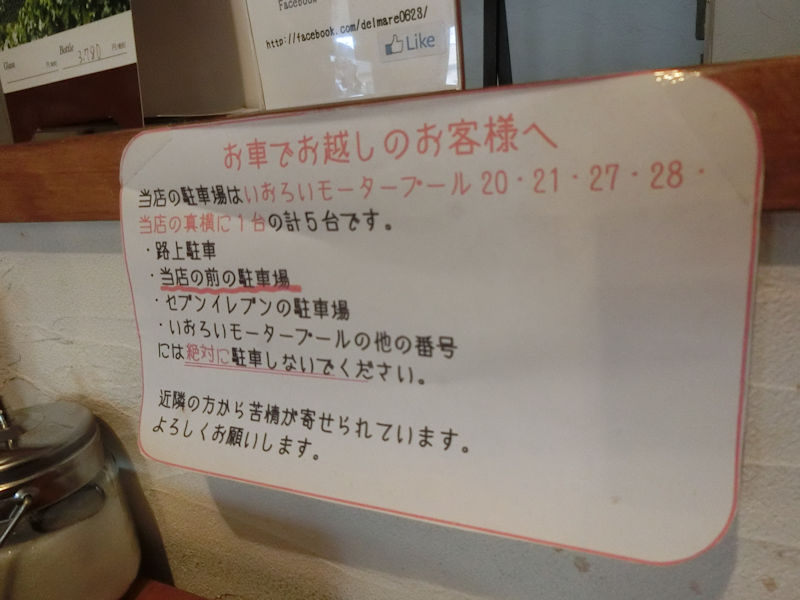 Facebook
http://facebook.com/delmare0623/
Like
Glass
Bottle
3,780
お車でお越しのお客様へ
当店の駐車場はいおろいモータープール 20・21・27・28・
当店の真横に1台の計5台です。
・路上駐車
・当店の前の駐車場
・セブンイレブンの駐車場
・いおろいモータープールの他の番号
には絶対に駐車しないでください。
近隣の方から苦情が寄せられています。
よろしくお願いします。